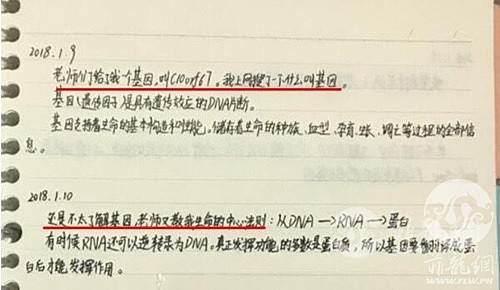 2018.1.9
老师们给了我一个基因,叫C10orf67。我上网搜了一下什么叫基因。
基因(遗传因子)是具有遗传效应的DNA片断。
基因支持着生命的基本构造和性能。储存着生命的种族、血型、孕育、生长、凋亡等过程的全部信
息。
2018.1.10
还是不太了解基因,老师又教我生命的中心法则:从DNA→RNA→蛋白
有时候RNA还可以逆转录为DNA。真正发挥功能的多数是蛋白质,所以基因要翻译成蛋
白后才能发挥作用。
WWW.FLW.PH